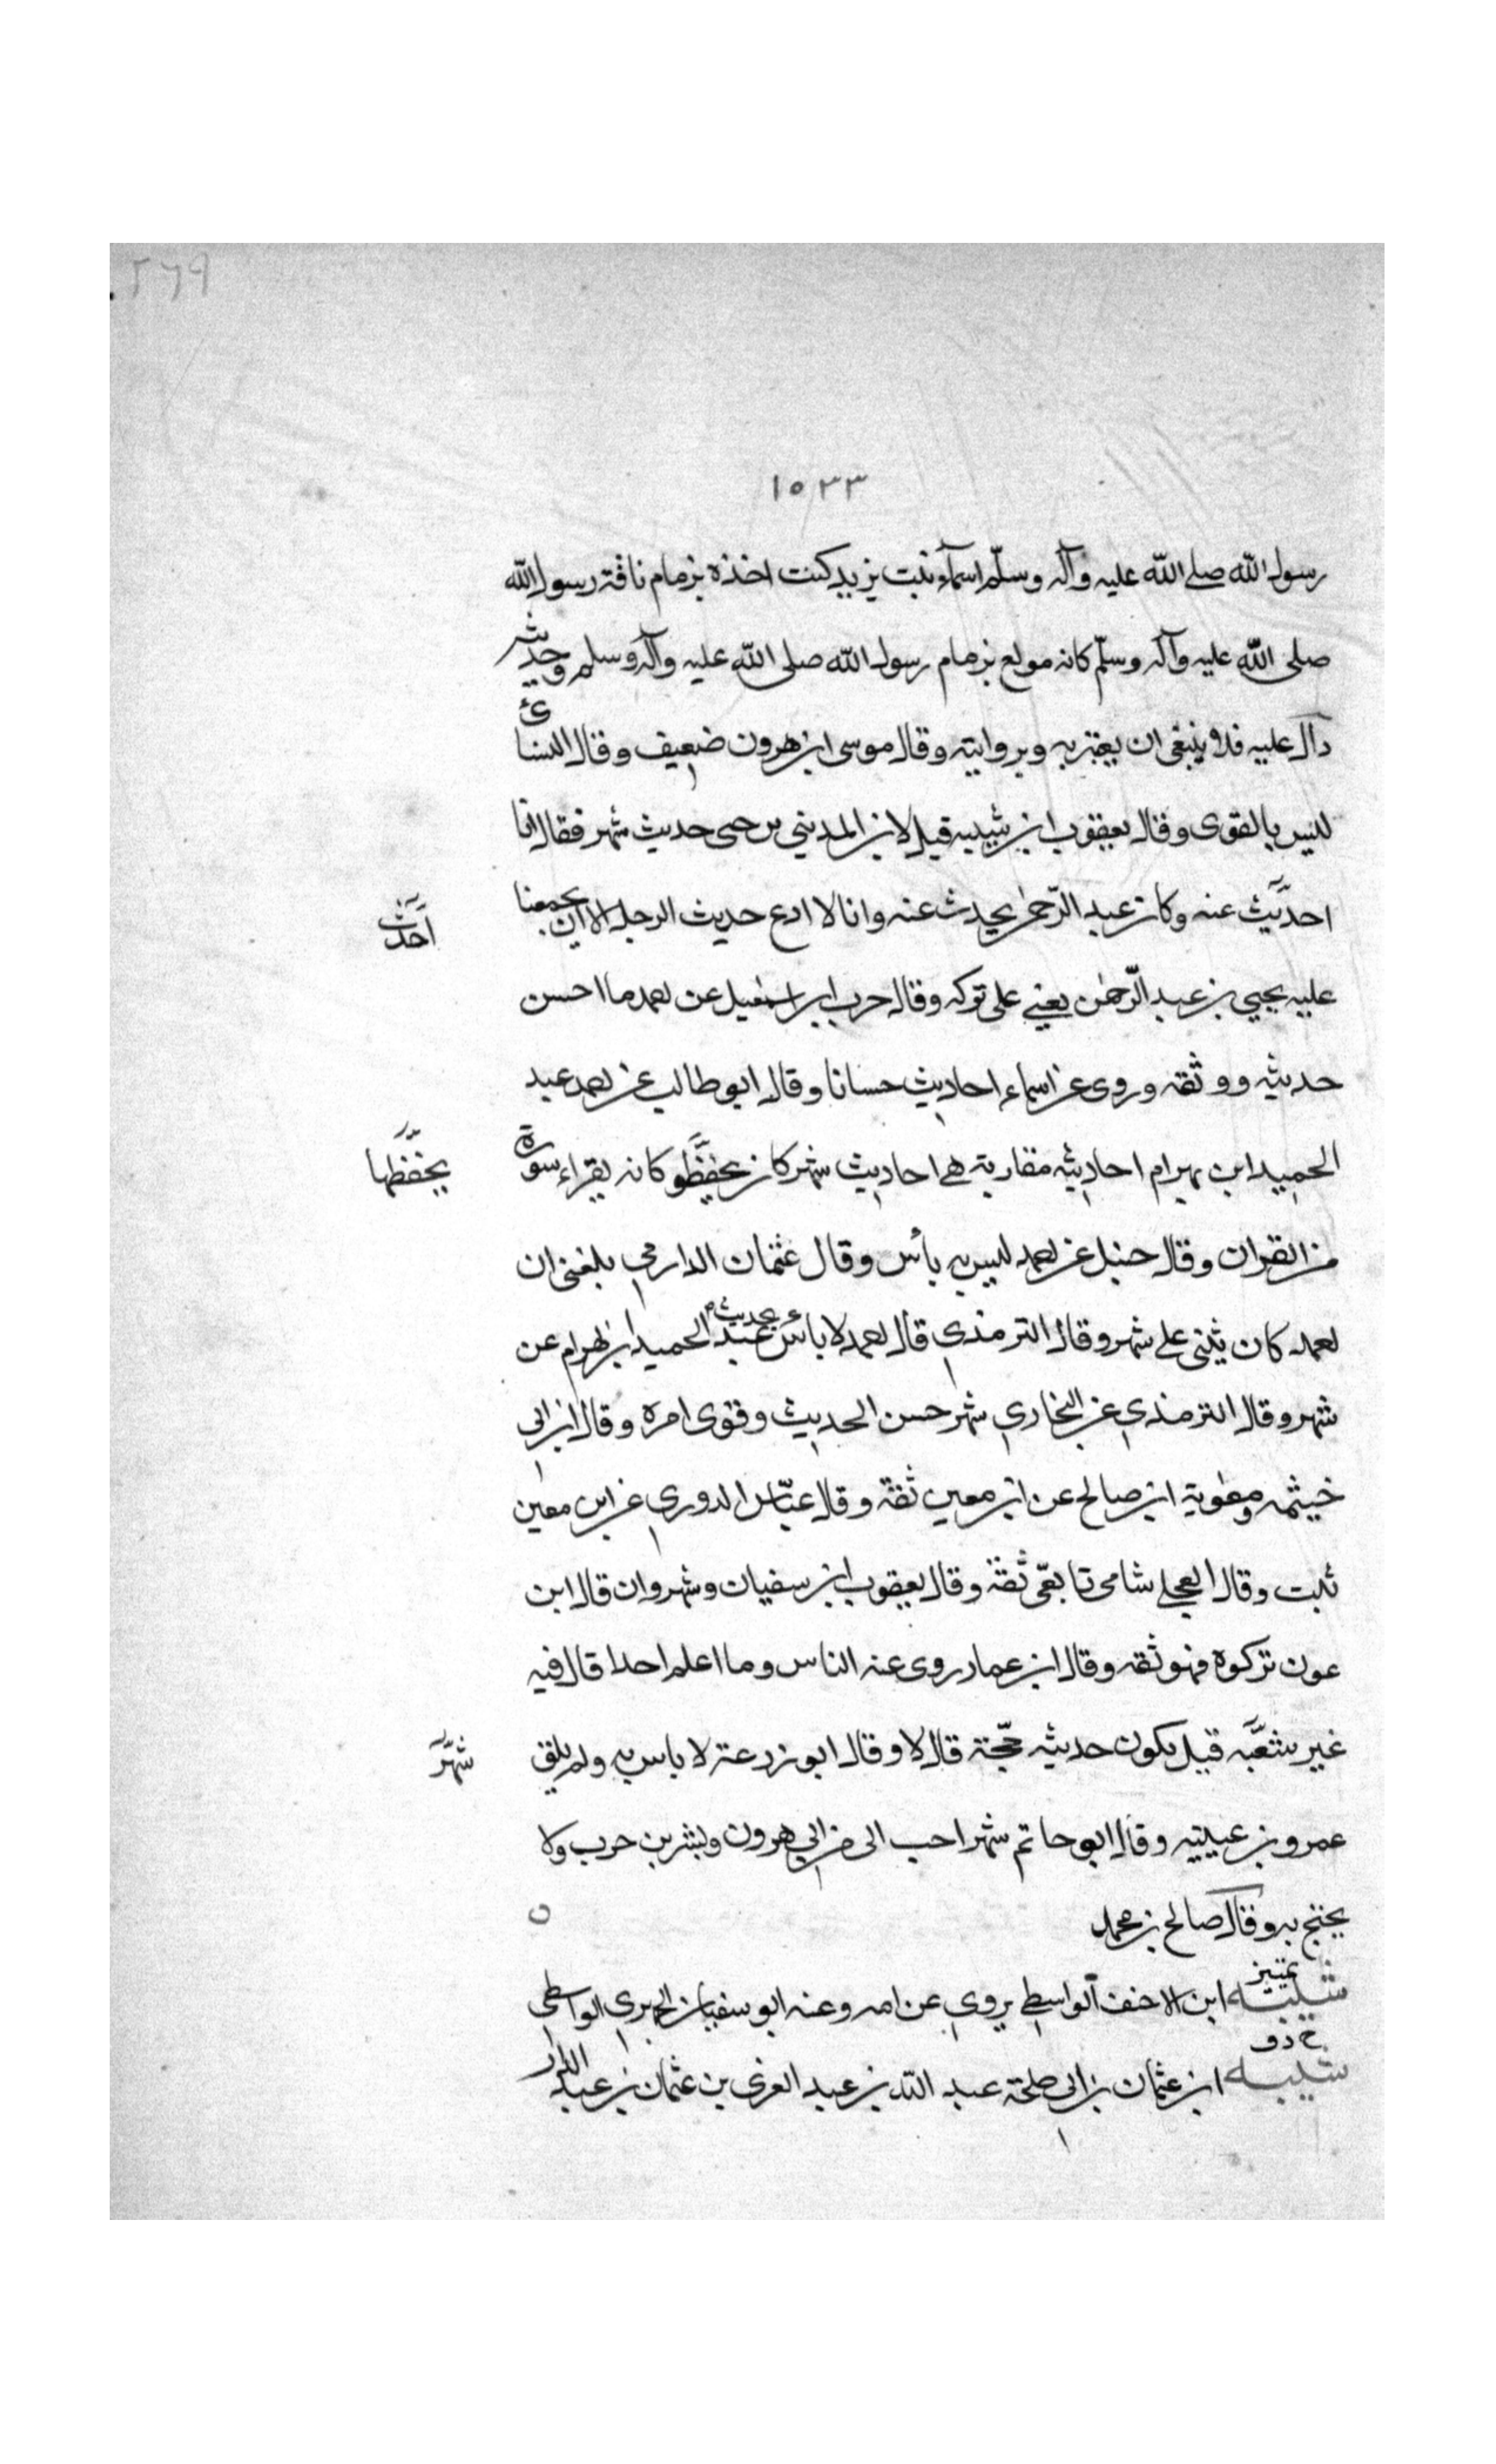 ٢٦٩
١٥٣٣
رسول الله صلى الله عليه وآله وسلّم اسمآء بنت يزيد كنت اخذة بزمام ناقة رسول الله
صلى الله عليه وآله وسلّم كانه مولع بزمام رسول الله صلى الله عليه وآله وسلم وحديثه
دآل عليه فلا ينبغى ان يعتبر به وبروايته وقال موسى ابن هرون ضعيف وقال النسائ
ليس بالقوى وقال يعقوب ابن شيبه قيل لابن المدينى حديث شهر فقال انا
احدّث عنه وكان عبد الرّحمن يحدث عنه وانا لا ادع حديث الرجل الا ان يجمعنا
أحدّث
عليه يحيى بن عبد الرّحمٰن يعني على تركه وقال حرب ابن اسمعيل عن احمد ما احسن
حديثه ووثقه وروى عن اسماء احاديث حسانا وقال ابو طالب عن احمد عبد
الحميد ابن بهرام احاديثه مقاربة هے احاديث شهر كان يحفظو كانه يقراء سورة
يحفّظها
من القران وقال حنبل عن احمد ليس به بأس وقال عثمان الدارمي بلغنى ان
احمد كان يثنى على شهر وقال الترمذي قال احمد لا بأس بحديث عبد الحميد ابن بهرام عن
شهر وقال الترمذي عن البخاري شهر حسن الحديث وقوى امره وقال ابن ابى
خيثمه ومعٰوية ابن صالح عن ابن معين ثقة وقال عبّاس الدوري عن ابن معين
ثبت وقال العجلے شامى تابعّى ثقة وقال يعقوب ابن سفيان وشهر وان قال ابن
عون تركوه فهو ثقه وقال ابن عمار روى عنه الناس وما اعلم احدا قال فيه
غير شعّبه قيل يكون حديثه حجّة قال لا وقال ابو زرعة لا باس به ولم يلق
شهرّ
عمرو بن عبيته وقال ابو حاتم شهر احب الى من ابي هرون وبشر بن حرب ولا
يحتج به وقال صالح بن محمد
تمييز
شيبه ابن الاحنف الواسطے يروي عن امه وعنه ابو سفيان الحميري الواسطى
خ د ق
شيبه ابن عثمان بن ابى طلحة عبد الله بن عبد العزى بن عثمان بن عبد الدار